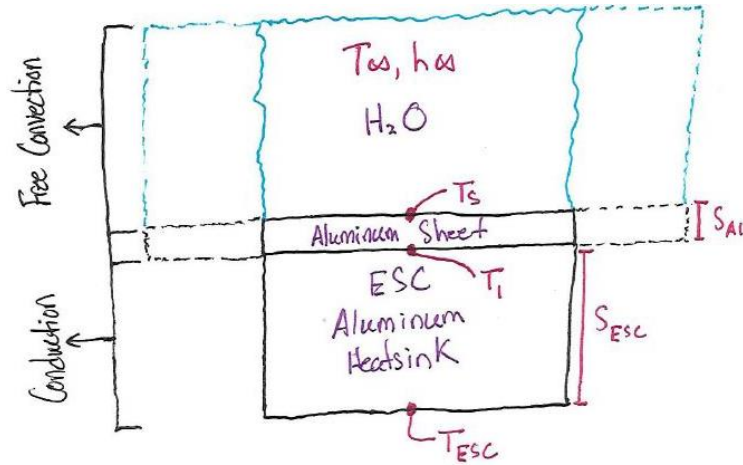 Free Convection
Conduction
T∞, h∞
H₂O
Ts
Aluminum Sheet
SAL
T₁
ESC
Aluminum
Heatsink
SESC
TESC